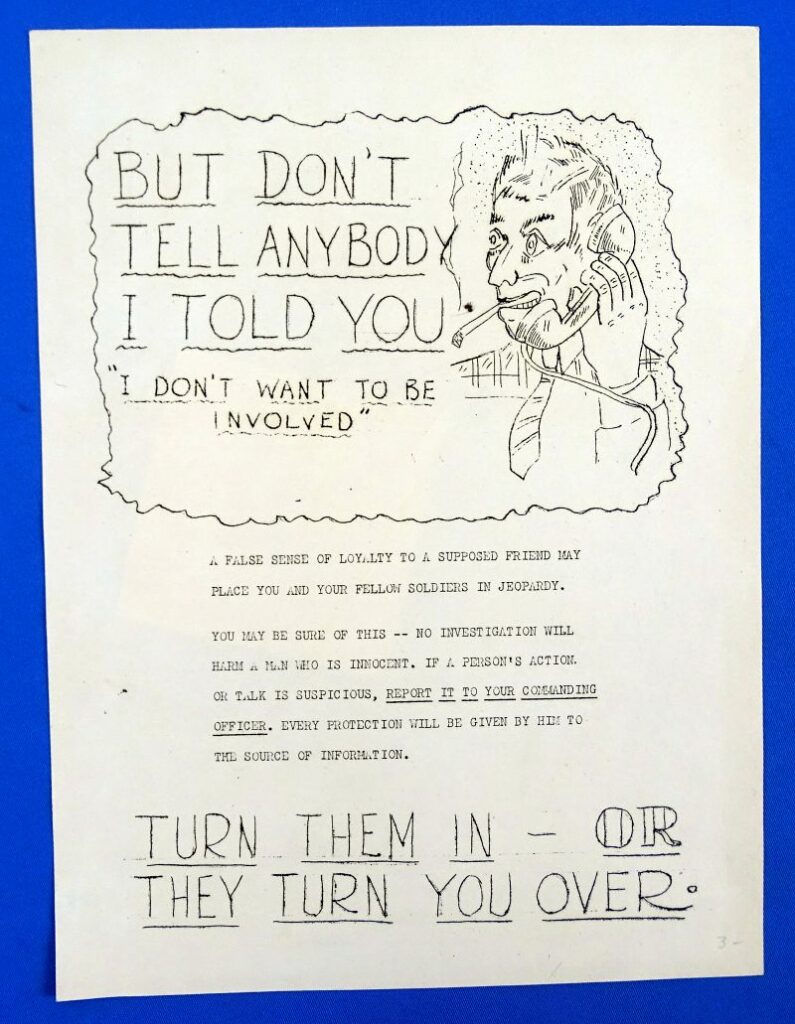 BUT DON'T
TELL ANYBODY
I TOLD YOU
"I DON'T WANT TO BE
INVOLVED"
A FALSE SENSE OF LOYALTY TO A SUPPOSED FRIEND MAY
PLACE YOU AND YOUR FELLOW SOLDIERS IN JEOPARDY.
YOU MAY BE SURE OF THIS -- NO INVESTIGATION WILL
HARM A MAN WHO IS INNOCENT. IF A PERSON'S ACTION
OR TALK IS SUSPICIOUS, REPORT IT TO YOUR COMMANDING
OFFICER. EVERY PROTECTION WILL BE GIVEN BY HIM TO
THE SOURCE OF INFORMATION.
TURN THEM IN - OR
THEY TURN YOU OVER.
3-